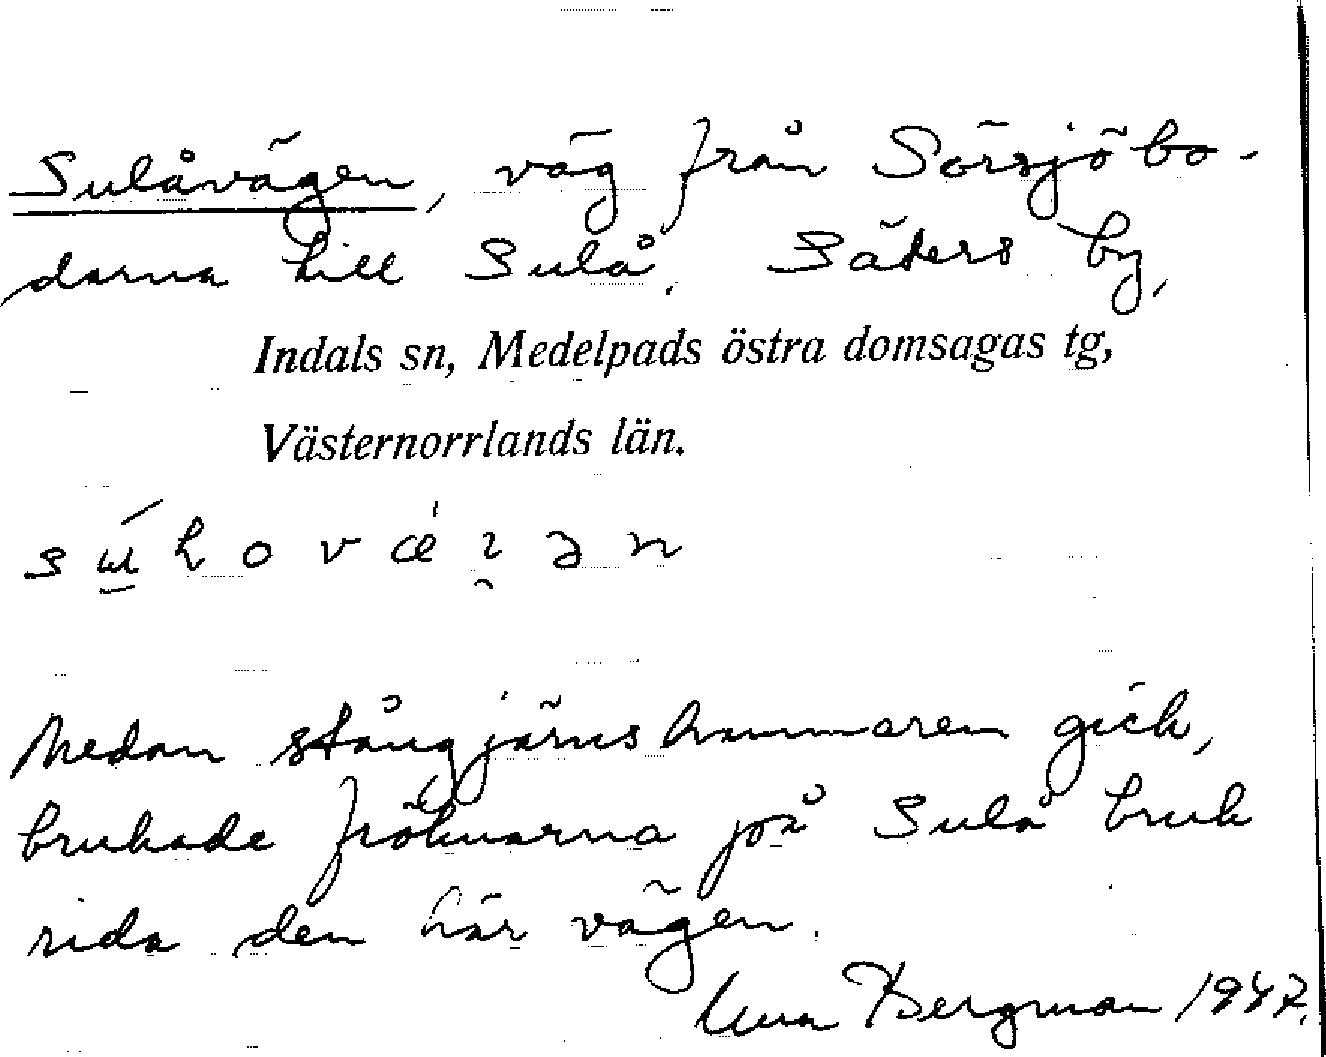 Sulåvägen, väg från Sörsjöbo-
darna till Sulå. Säters by,
Indals sn, Medelpads östra domsagas tg,
Västernorrlands län.
Medan stångjärnshammaren gick,
brukade fröknarna på Sulå bruk
rida den här vägen.
Bergman 1947.